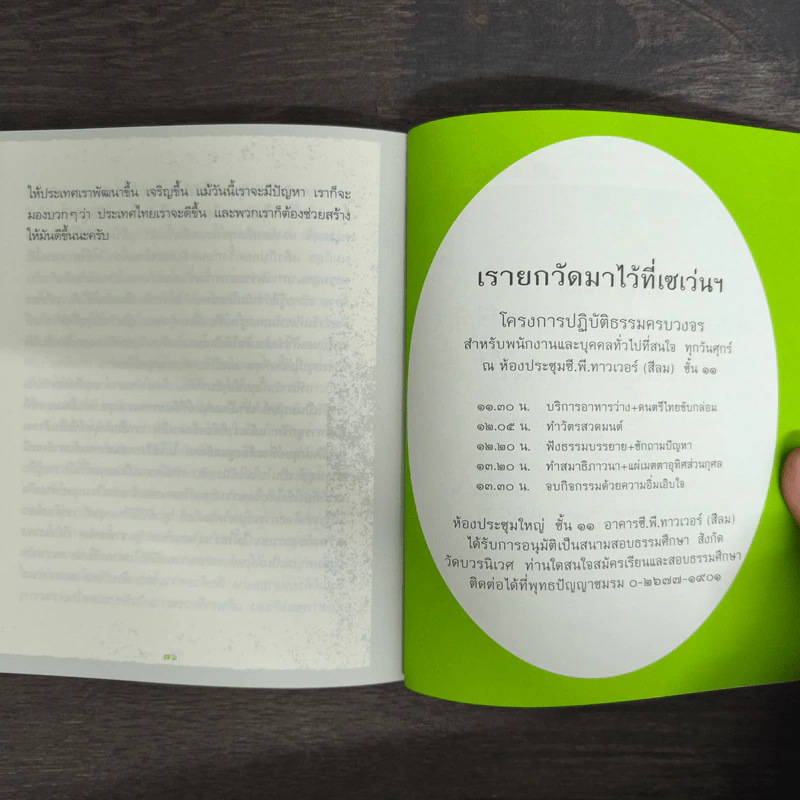 ให้ประเทศเราพัฒนาขึ้น เจริญขึ้น แม้วันนี้เราจะมีปัญหา เราก็จะ
มองบวกๆว่า ประเทศไทยเราจะดีขึ้น และพวกเราก็ต้องช่วยสร้าง
ให้มันดีขึ้นนะครับ
เรายกวัดมาไว้ที่เซเว่นฯ
โครงการปฏิบัติธรรมครบวงจร
สำหรับพนักงานและบุคคลทั่วไปที่สนใจ ทุกวันศุกร์
ณ ห้องประชุมซี.พี.ทาวเวอร์ (สีลม) ชั้น ๑๑
๑๑.๓๐ น. บริการอาหารว่าง+ดนตรีไทยขับกล่อม
๑๒.๐๕ น. ทำวัตรสวดมนต์
๑๒.๒๐ น. ฟังธรรมบรรยาย+ซักถามปัญหา
๑๓.๒๐ น. ทำสมาธิภาวนา+แผ่เมตตาอุทิศส่วนกุศล
๑๓.๓๐ น. จบกิจกรรมด้วยความอิ่มเอิบใจ
ห้องประชุมใหญ่ ชั้น ๑๑ อาคารซี.พี.ทาวเวอร์ (สีลม)
ได้รับการอนุมัติเป็นสนามสอบธรรมศึกษา สังกัด
วัดบวรนิเวศ ท่านใดสนใจสมัครเรียนและสอบธรรมศึกษา
ติดต่อได้ที่พุทธปัญญาชมรม ๐-๒๖๗๗-๑๙๐๑